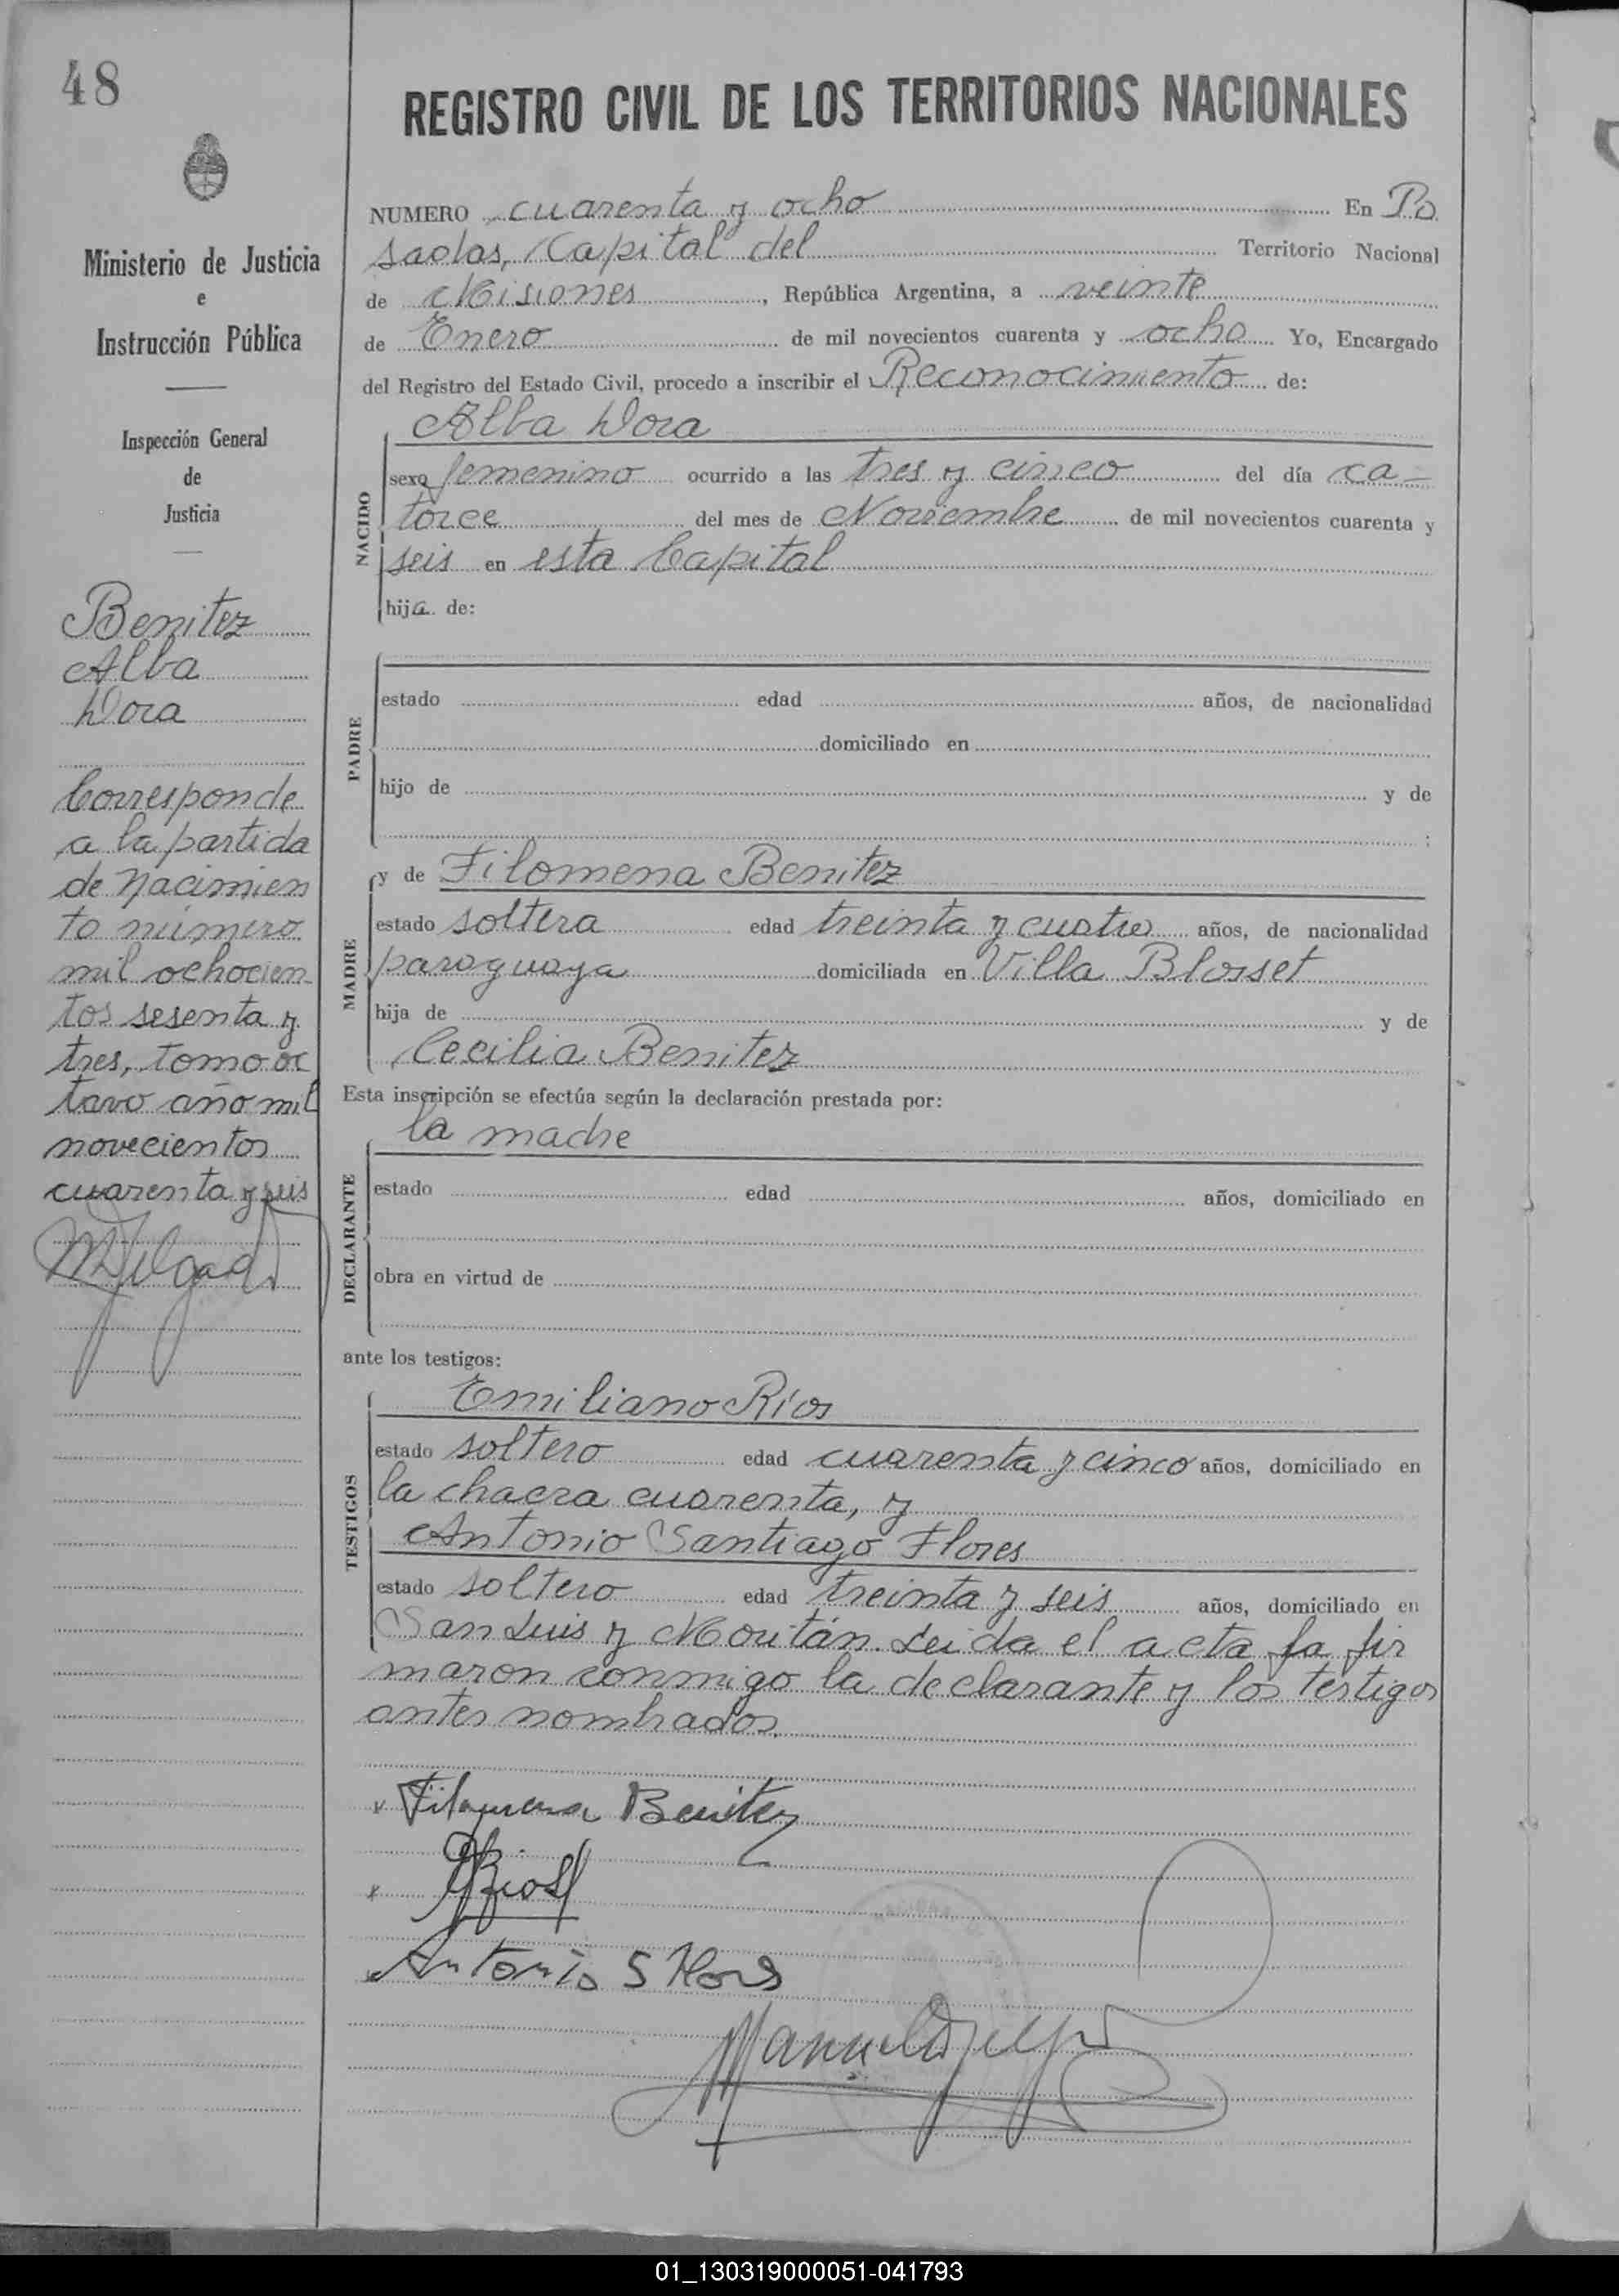 48
Ministerio de Justicia
e
Instrucción Pública
Inspección General
de
Justicia
Benitez
Alba
Dora
Corresponde
a la partida
de Nacimien
to número
mil ochocien
tos sesenta y
tres, tomo oc
tavo año mil
novecientos
cuarenta y seis
REGISTRO CIVIL DE LOS TERRITORIOS NACIONALES
NUMERO cuarenta y ocho En Po
sadas, Capital del Territorio Nacional
de Misiones, República Argentina, a veinte
de Enero de mil novecientos cuarenta y ocho Yo, Encargado
del Registro del Estado Civil, procedo a inscribir el Reconocimiento de:
Alba Dora
NACIDO
sexo femenino ocurrido a las tres y cinco del día ca-
torce del mes de Noviembre de mil novecientos cuarenta y
seis en esta Capital
hija de:
PADRE
estado edad años, de nacionalidad
domiciliado en
hijo de y de
;
MADRE
y de Filomena Benitez
estado soltera edad treinta y cuatro años, de nacionalidad
paraguaya domiciliada en Villa Blosset
hija de y de
Cecilia Benitez
Esta inscripción se efectúa según la declaración prestada por:
la madre
DECLARANTE
estado edad años, domiciliado en
obra en virtud de
ante los testigos:
TESTIGOS
Emiliano Ríos
estado soltero edad cuarenta y cinco años, domiciliado en
la chacra cuarenta, y
Antonio Santiago Flores
estado soltero edad treinta y seis años, domiciliado en
San Luis y Moritán. Leida el acta la fir
maron conmigo la declarante y los testigos
antes nombrados.
x Filomena Benitez
x Rios
x Antonio S Flores
01_130319000051-041793